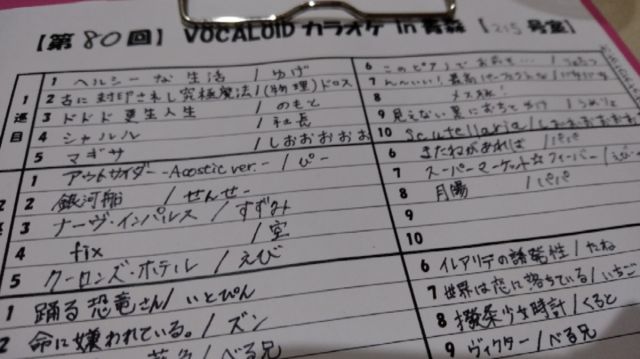 【第80回】 VOCALOID カラオケ in 青森 【215号室】
1巡目
1 ヘルシーな生活 / ゆげ
2 古に封印されし究極魔法(物理) / ドロス
3 ドドド 更生人生 / のもと
4 シャルル / 社長
5 マギサ / しおおおおお
6 このピアノでお前を
7
8 メズマ
9 見えない
10 Scutellaria / しおおおおお
1 アウトサイダー -Acostic ver.- / ぴー
2 銀河船 / せんせー
3 ナーヴ・インパルス / すずみ
4 fix / 空
5 クーロンズ・ホテル / えび
6 またねがあれば / パパ
7 スーパーマーケット☆フィーバー / えび
8 月陽 / パパ
9
10
1 踊る恐竜さん / いとぴん
2 命に嫌われている。 / ズン
べる兄
6 イレアリテの誘発性 / たね
7 世界は恋に落ちている / いちご
8 少女時計 / くると
9 ヴィクター / べる兄